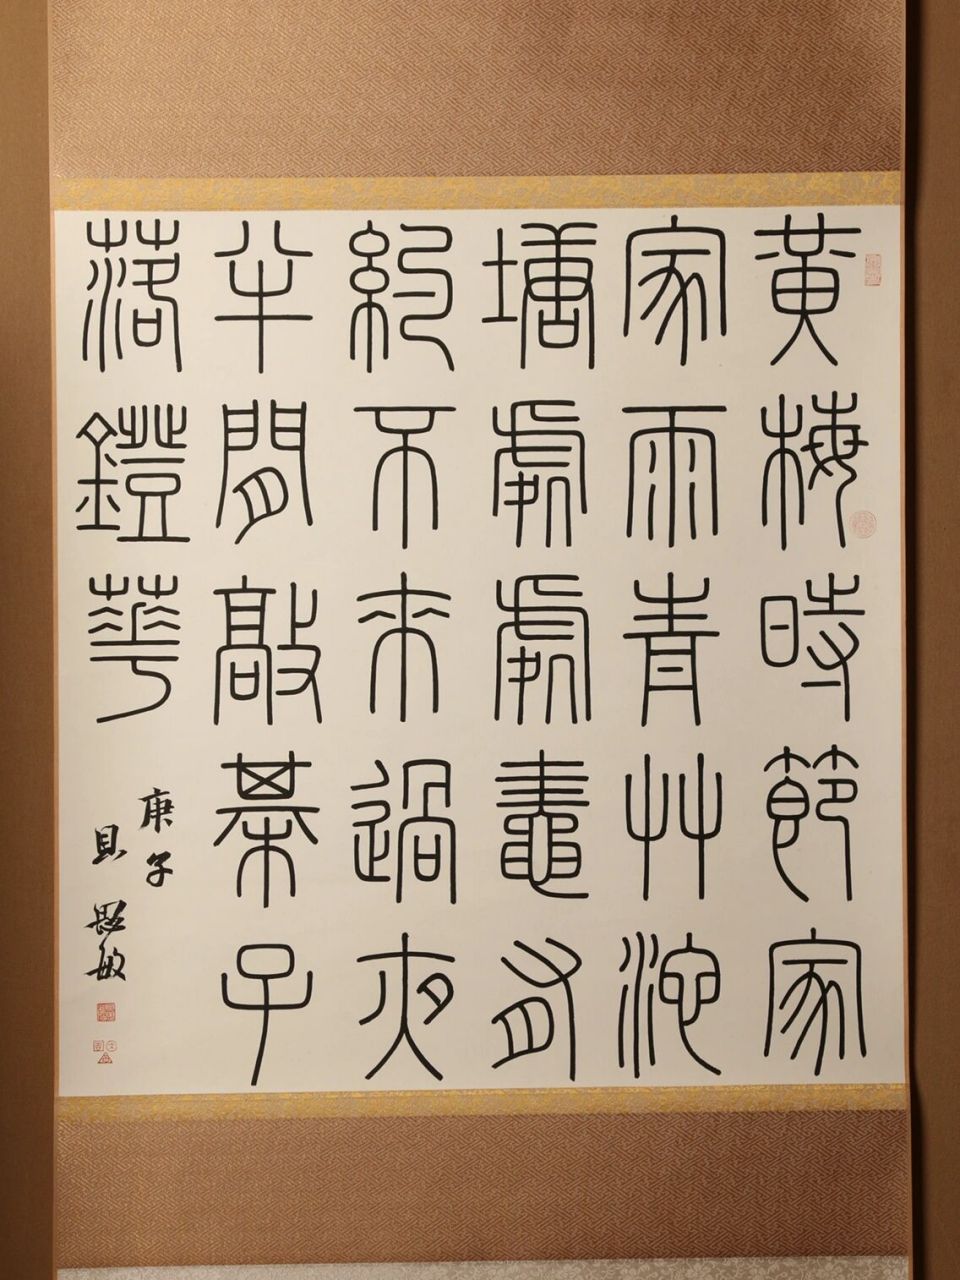 黃梅時節家
家雨青艸池
塘處處鼃有
約不來過夜
半閒敲棊子
落鐙華
庚子
敏